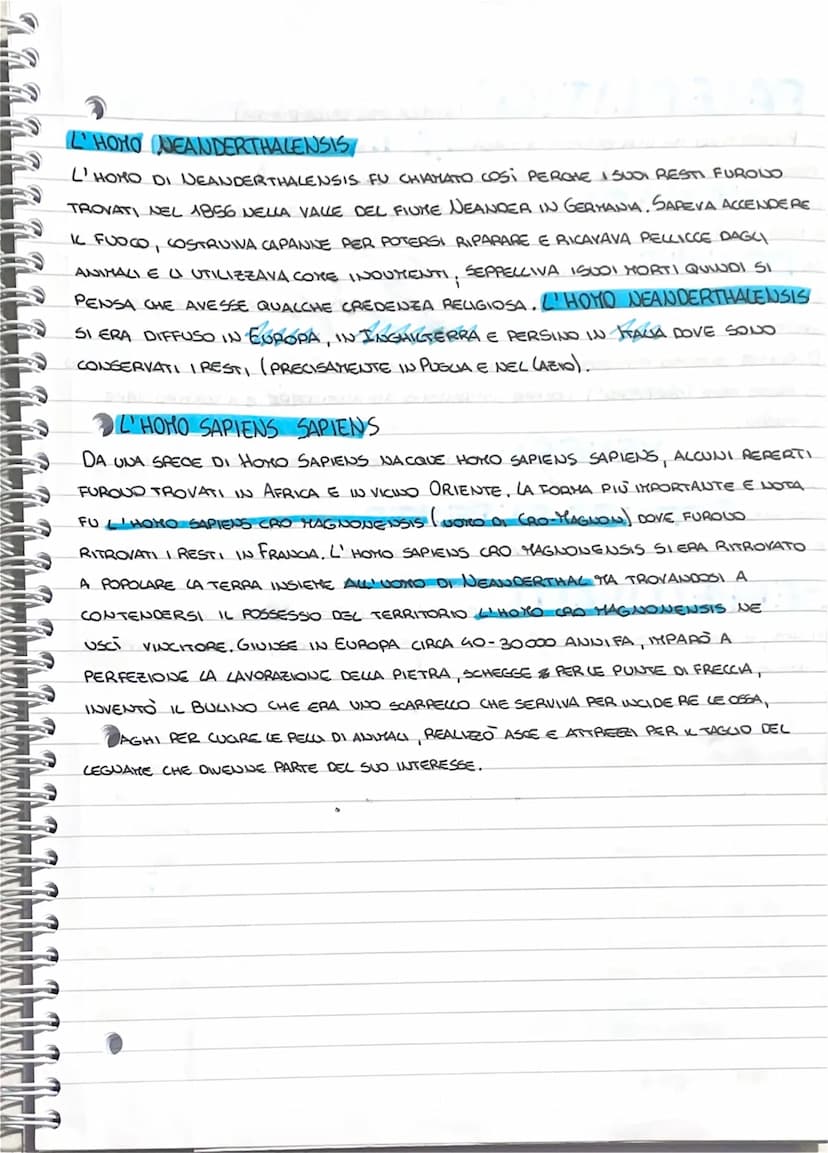 L'HOMO NEANDERTHALENSIS
L'HOMO DI NEANDERTHALENSIS FU CHIAMATO COSÌ PERCHE I SUOI RESTI FURONO
TROVATI, NEL 1856 NELLA VALLE DEL FIUME NEANDER IN GERMANIA. SAPEVA ACCENDERE
IL FUOCO, COSTRUIVA CAPANNE PER POTERSI RIPARARE E RICAVAVA PELLICCE DAGLI
ANIMALI E LI UTILIZZAVA COME INDUMENTI, SEPPELLIVA I SUOI MORTI QUINDI SI
PENSA CHE AVESSE QUALCHE CREDENZA RELIGIOSA. L'HOMO NEANDERTHALENSIS
SI ERA DIFFUSO IN EUROPA, IN INGHILTERRA E PERSINO IN ITALIA DOVE SONO
CONSERVATI I RESTI, (PRECISAMENTE IN PUGLIA E NEL LAZIO).
L'HOMO SAPIENS SAPIENS
DA UNA SPECE DI HOMO SAPIENS NACQUE HOMO SAPIENS SAPIENS, ALCUNI REPERTI
FURONO TROVATI IN AFRICA E IN VICINO ORIENTE. LA FORMA PIÙ IMPORTANTE E NOTA
FU L'HOMO SAPIENS CRO MAGNONENSIS (UOMO DI CRO-MAGNON) DOVE FURONO
RITROVATI I RESTI IN FRANCIA. L'HOMO SAPIENS CRO MAGNONENSIS SI ERA RITROVATO
A POPOLARE LA TERRA INSIEME ALL'UOMO DI NEANDERTHAL MA TROVANDOSI A
CONTENDERSI IL POSSESSO DEL TERRITORIO L'HOMO CRO MAGNONENSIS NE
USCÌ VINCITORE. GIUNSE IN EUROPA CIRCA 40-30000 ANNI FA, IMPARÒ A
PERFEZIONE LA LAVORAZIONE DELLA PIETRA, SCHEGGE PER LE PUNTE DI FRECCIA,
INVENTÒ IL BULINO CHE ERA UNO SCARPELLO CHE SERVIVA PER INCIDERE LE OSSA,
AGHI PER CUCIRE LE PELLI DI ANIMALI, REALIZZÒ ASCE E ATTREZZI PER IL TAGLIO DEL
LEGNAME CHE DIVENNE PARTE DEL SUO INTERESSE.